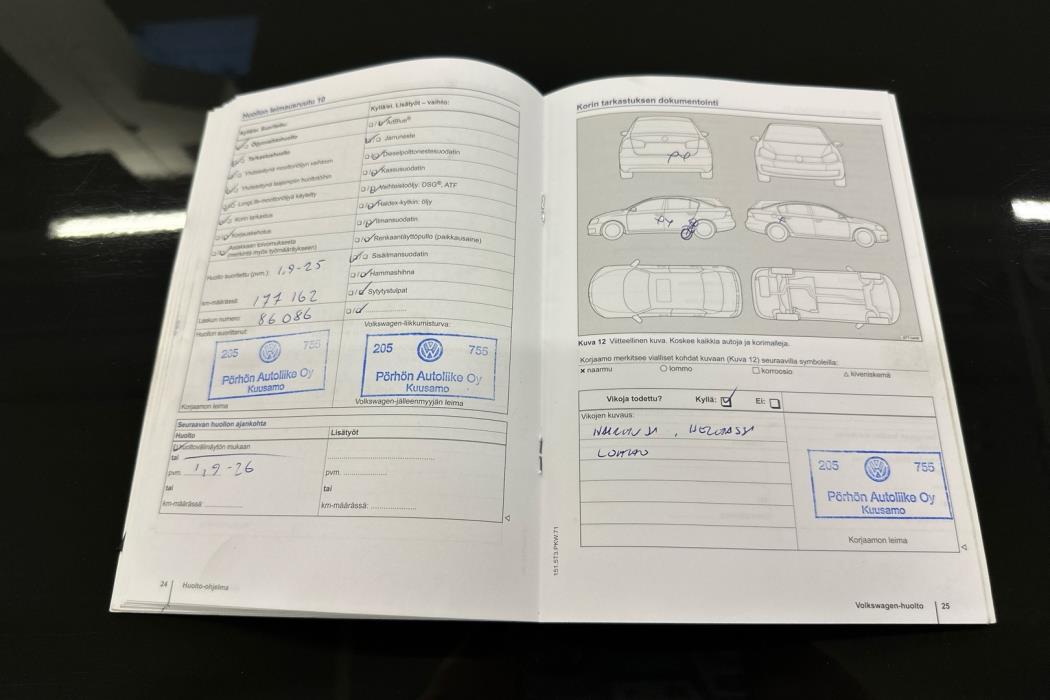 Huollon leimausruutu 10
Kyllä/ei Suoritettu:
Öljynvaihtohuolto
Tarkastushuolto
Yhdistettynä moottoriöljyn vaihtoon
Yhdistettynä laajempiin huoltotöihin
LongLife-moottoriöljyä käytetty
Korin tarkastus
Korjauskehotus
Asiakkaan toivomuksesta
(merkintä myös työmääräykseen)
Huolto suoritettu (pvm.): 1.9-25
km-määrässä: 177 162
Laskun numero: 86086
Huollon suorittanut:
205 755
Pörhön Autoliike Oy
Kuusamo
Korjaamon leima
Kyllä/ei Lisätyöt – vaihto:
AdBlue®
Jarruneste
Dieselpolttonestesuodatin
Kaasusuodatin
Vaihteistoöljy: DSG®, ATF
Haldex-kytkin: öljy
Ilmansuodatin
Renkaantäyttöpullo (paikkausaine)
Sisäilmansuodatin
Hammashihna
Sytytystulpat
Volkswagen-liikkumisturva:
205 755
Pörhön Autoliike Oy
Kuusamo
Volkswagen-jälleenmyyjän leima
Seuraavan huollon ajankohta
Huolto
Huoltovälinäytön mukaan
tai
pvm. 1,9-26
tai
km-määrässä:
Lisätyöt
pvm.
tai
km-määrässä:
24 Huolto-ohjelma
Korin tarkastuksen dokumentointi
Kuva 12 Viitteellinen kuva. Koskee kaikkia autoja ja korimalleja.
Korjaamo merkitsee vialliset kohdat kuvaan (Kuva 12) seuraavilla symboleilla:
x naarmu
lommo
korroosio
kiveniskemä
Vikoja todettu? Kyllä: Ei:
Vikojen kuvaus:
205 755
Pörhön Autoliike Oy
Kuusamo
Korjaamon leima
151.5T3.PKW.71
Volkswagen-huolto 25